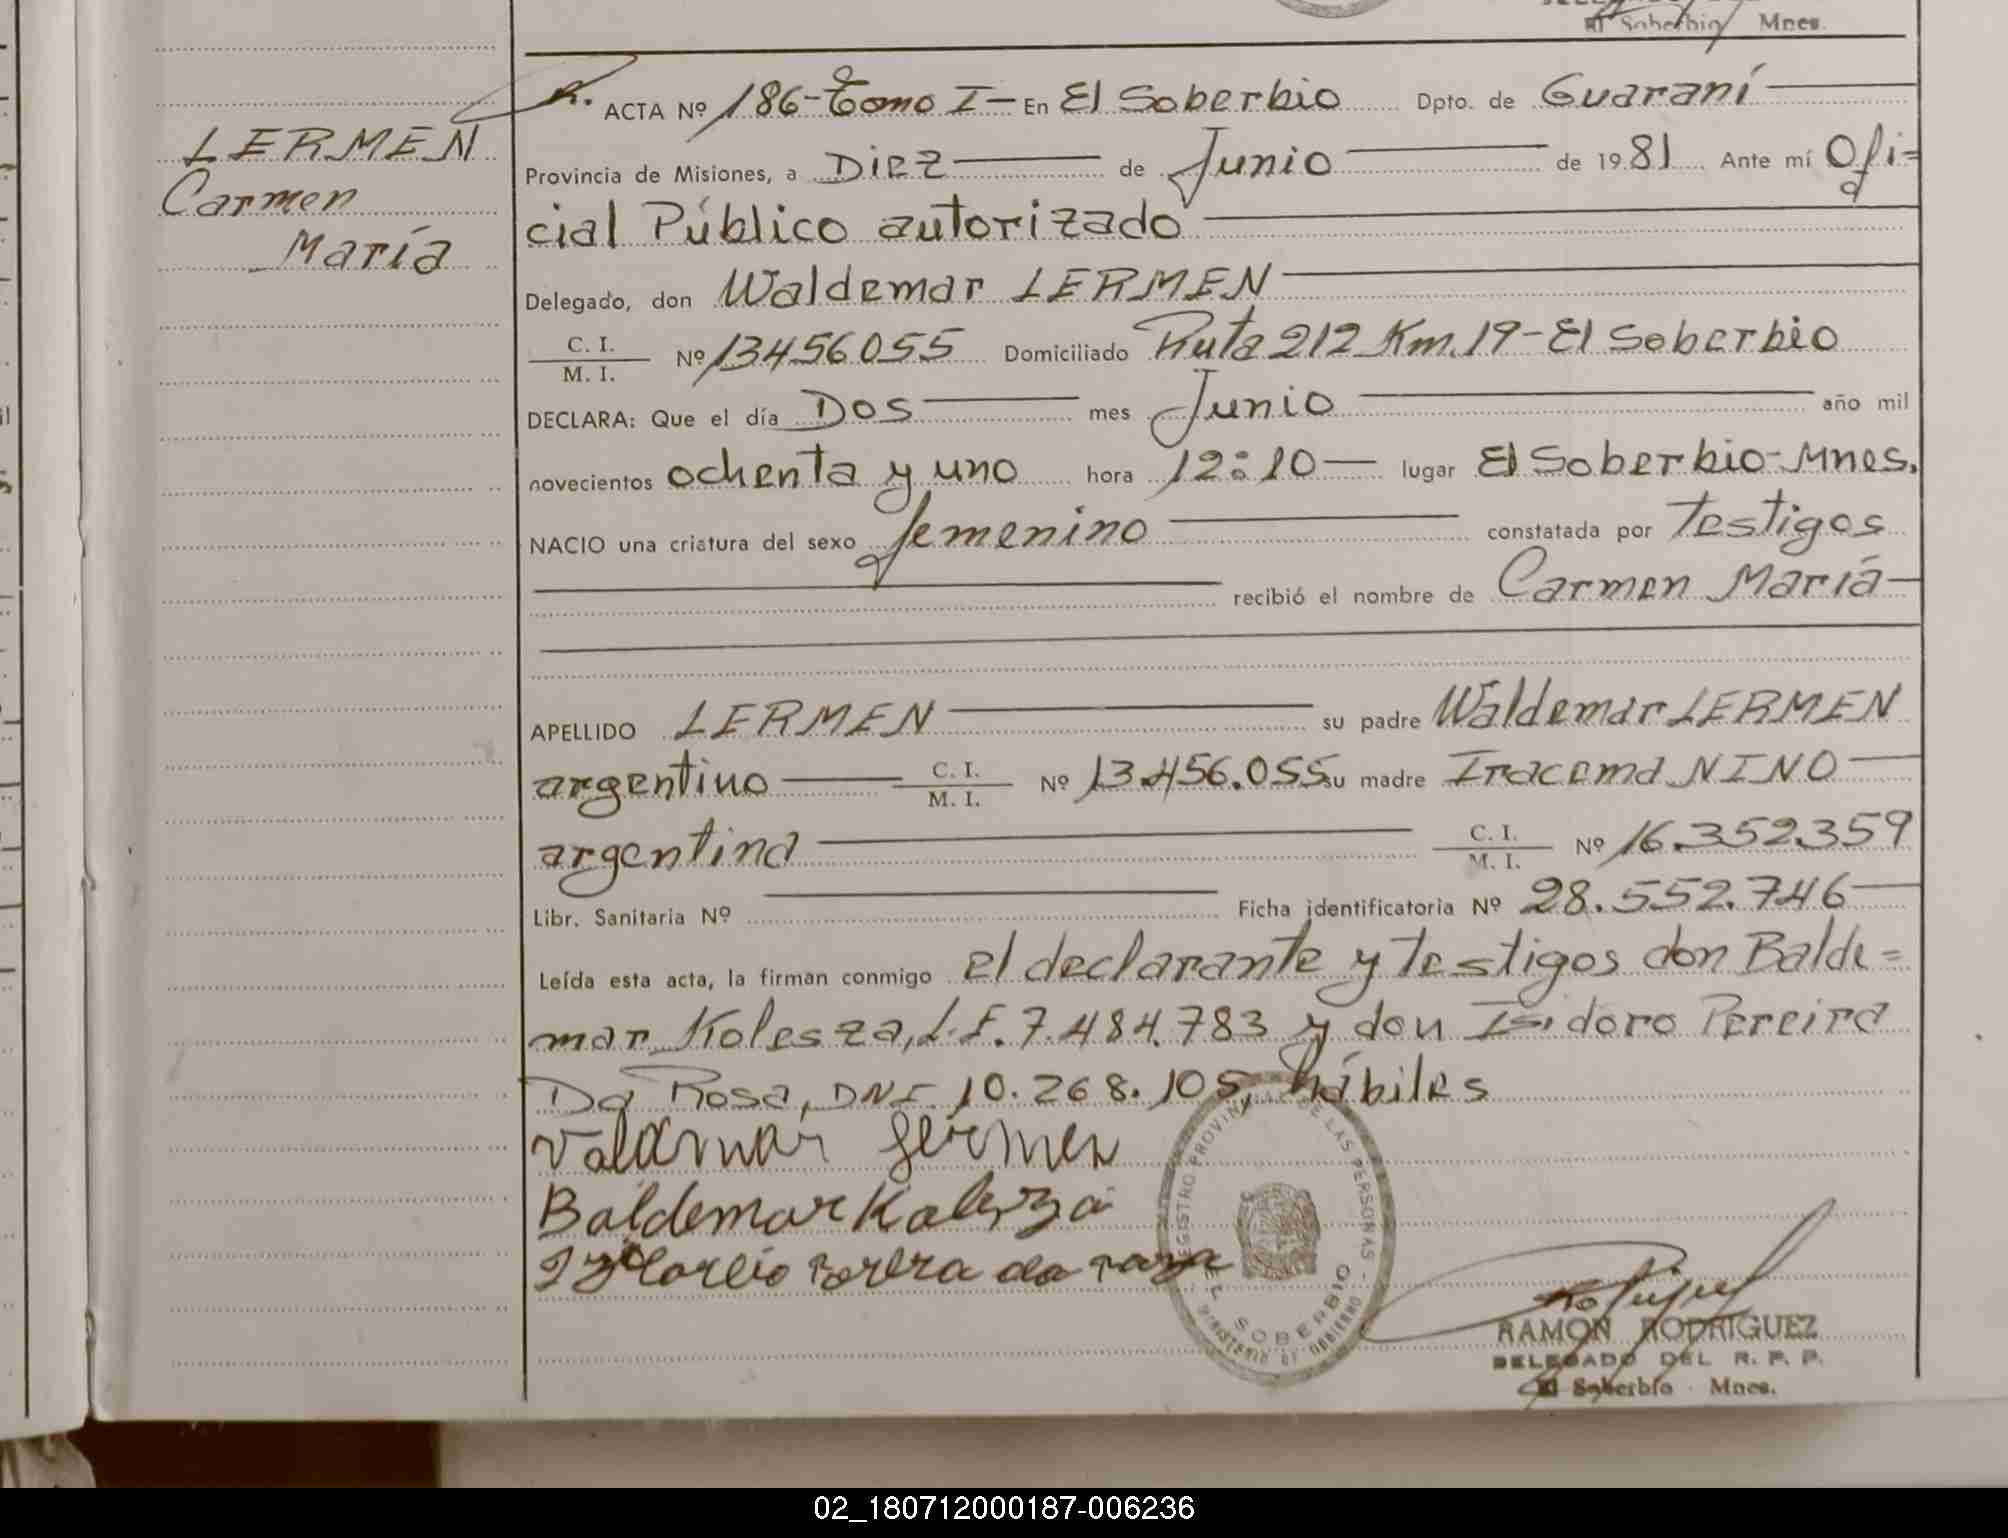 El Soberbio Mnes.
LERMEN
Carmen
María
R. ACTA Nº 186-Tomo I- En El Soberbio Dpto. de Guaraní
Provincia de Misiones, a Diez de Junio de 1981 Ante mí Ofi=
cial Público autorizado
Delegado, don Waldemar LERMEN
C. I. / M. I. Nº 13456055 Domiciliado Ruta 212 Km. 19-El Soberbio
DECLARA: Que el día Dos mes Junio año mil
novecientos ochenta y uno hora 12:10 lugar El Soberbio-Mnes.
NACIO una criatura del sexo femenino constatada por Testigos
recibió el nombre de Carmen María
APELLIDO LERMEN su padre Waldemar LERMEN
argentino C. I. / M. I. Nº 13.456.055 su madre Iracema NINO
argentina C. I. / M. I. Nº 16.352.359
Libr. Sanitaria Nº Ficha identificatoria Nº 28.552.746
Leída esta acta, la firman conmigo el declarante y testigos don Balde=
mar Kolesza, L.E. 7.484.783 y don Isidoro Pereira
Da Rosa, DNI. 10.268.105, hábiles
Valdemar Lermen
Baldemar Kolesza
da rosa
REGISTRO PROVINCIAL DE LAS PERSONAS
EL SOBERBIO
MINISTERIO DE GOBIERNO
RAMON RODRIGUEZ
DELEGADO DEL R. P. P.
El Soberbio - Mnes.
02_180712000187-006236